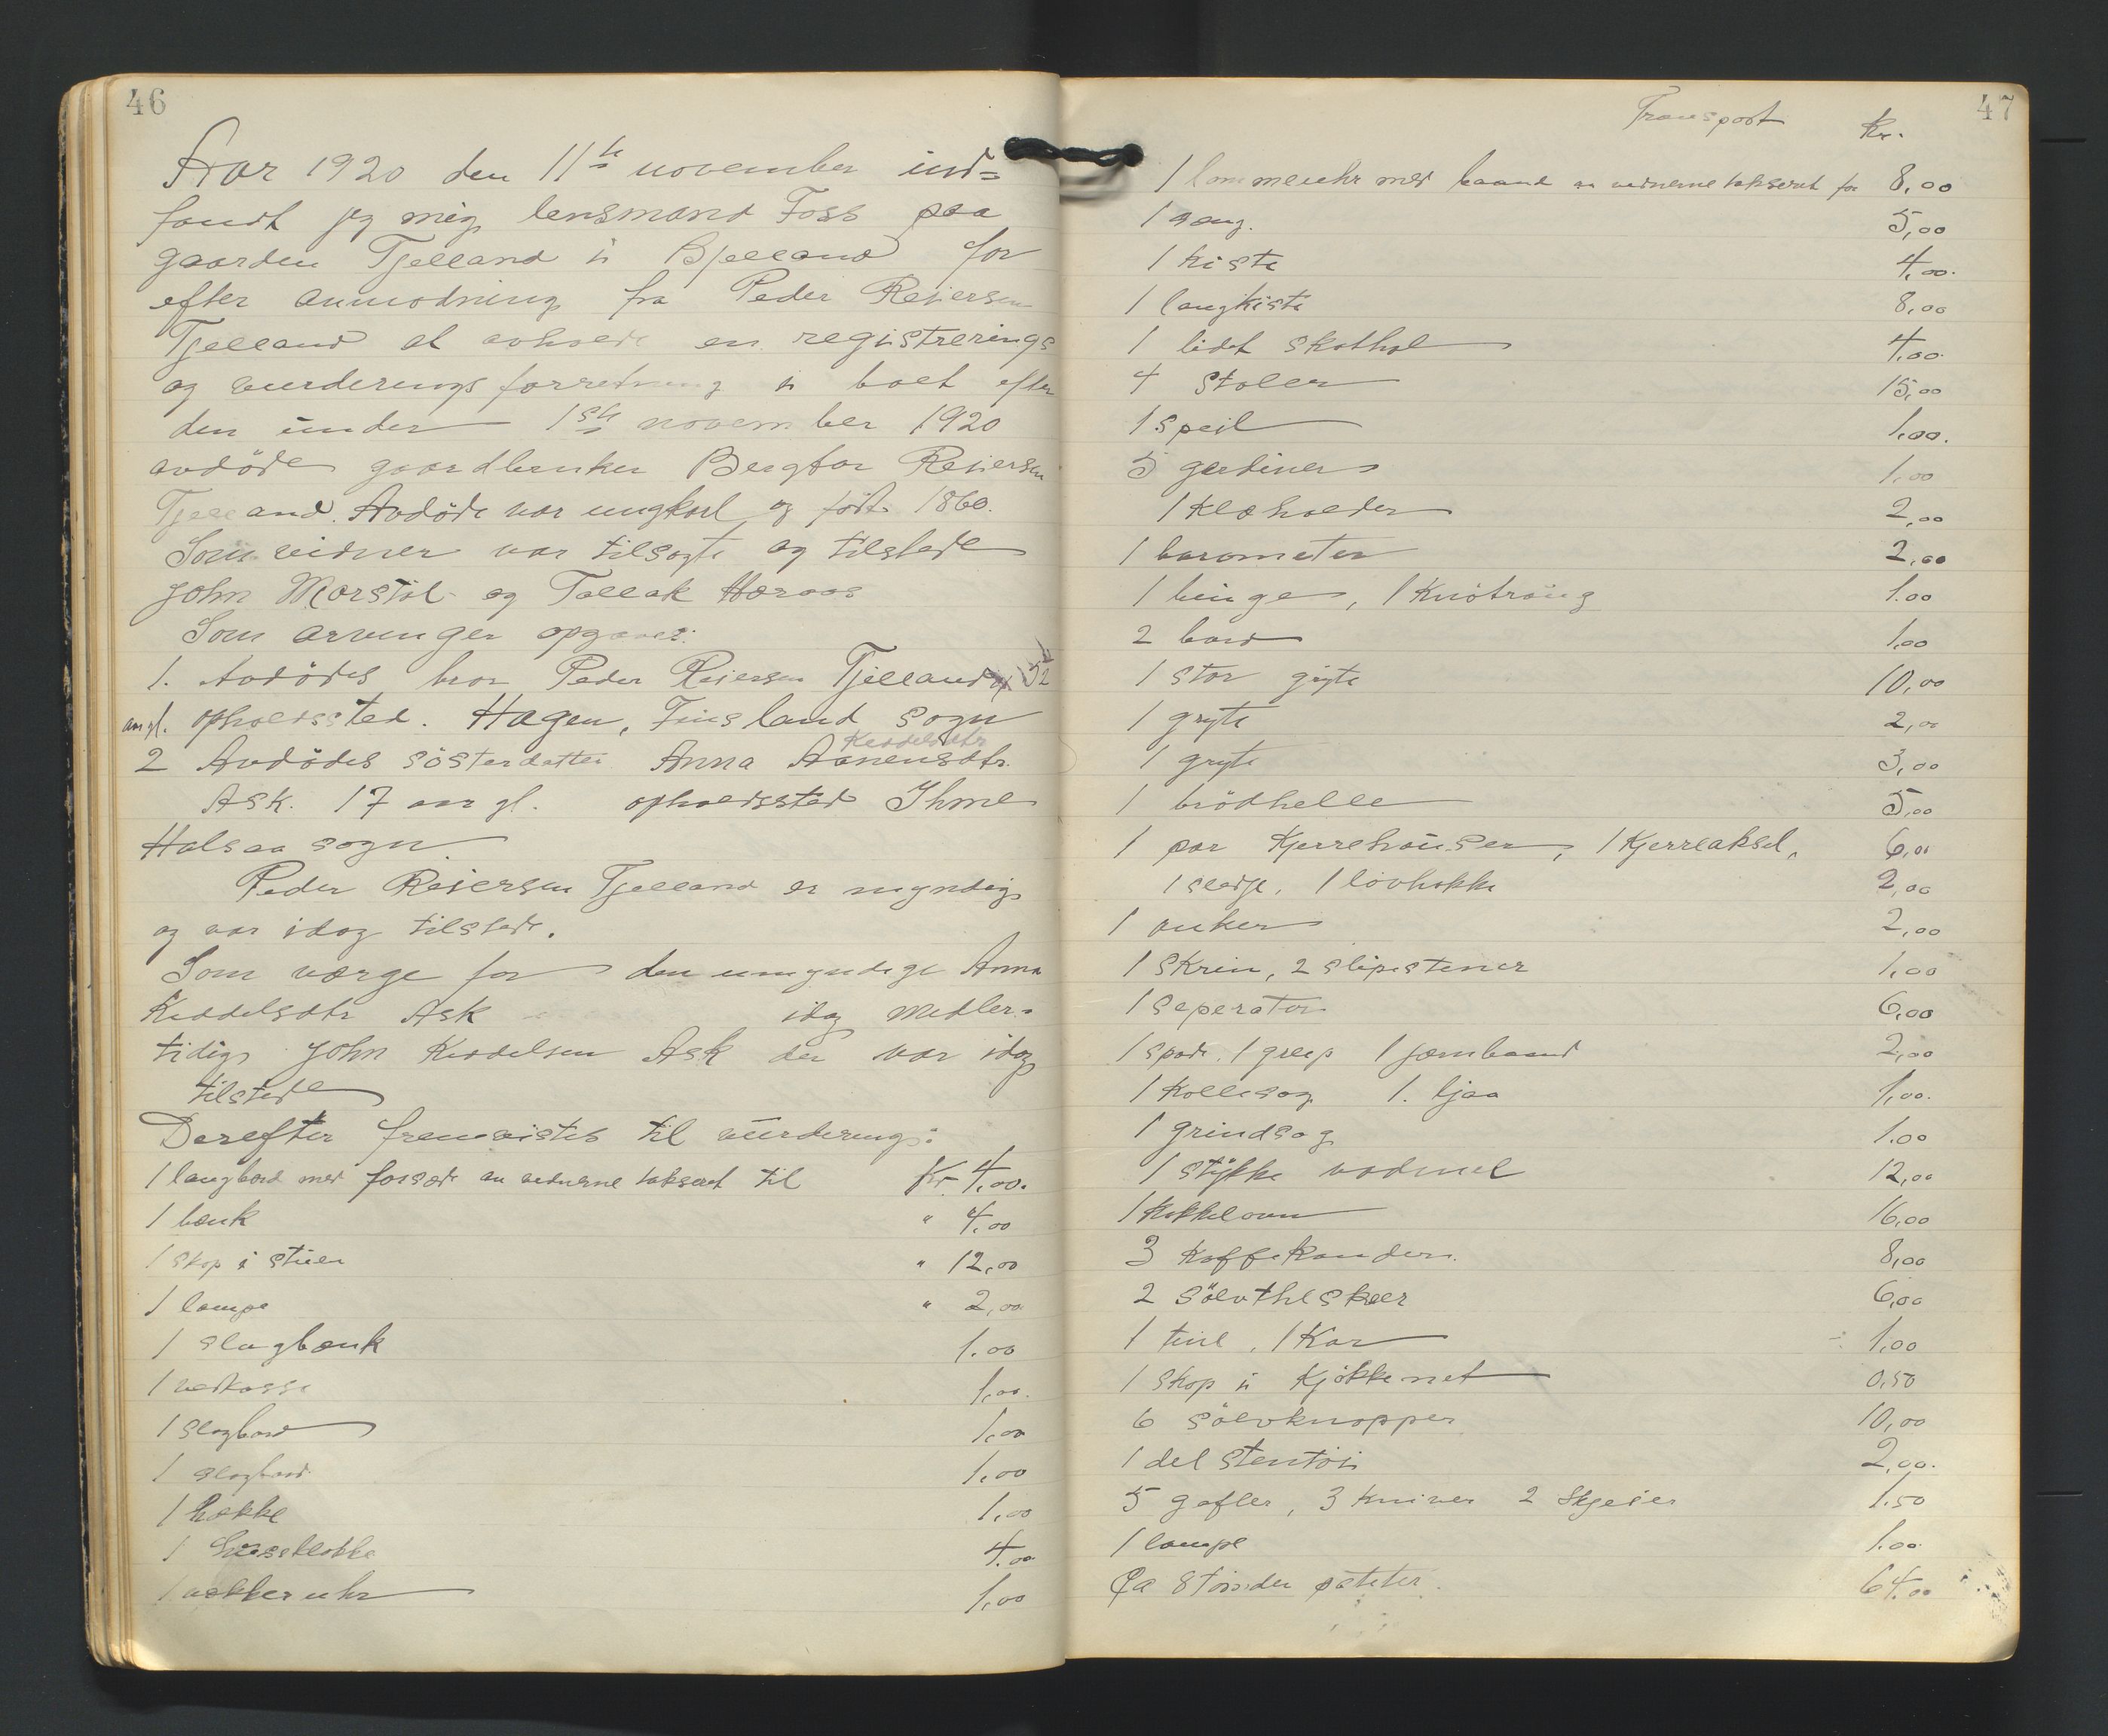 46
Aar 1920 den 11te november ind=
fandt jeg mig lensmand Foss paa
gaarden Tjelland i Bjelland for
efter anmodning fra Peder Reiersen
Tjelland at avholde en registrerings
og vurderingsforretning i boet efter
den under 1ste november 1920
avdöde gaardbruker Bergtor Reiersen
Tjelland. Avdöde var ungkarl og födt 1860.
Som vidner var tilsagte og tilstede
John Marstöl og Tallak Håraas
Som arvinger opgaves:
1. Avdödes bror Peder Reiersen Tjelland 52
aar gl. opholdssted. Hagen, Finsland sogn
Keddelsdtr
2 Avdödes sösterdatter Anna Aanensdtr.
Ask. 17 aar gl. opholdssted Ihme
Halsaa sogn
Peder Reiersen Tjelland er myndig
og var idag tilstede.
Som værge for den umyndige Anna
Keddelsdtr Ask idag midler=
tidig John Keddelsen Ask der var idag
tilstede
Derefter fremvistes til vurdering:
1 langbord med forsæde av vidnerne taksert til Kr. 4,00.
1 bænk " 4,00
1 skap i stuen " 12,00
1 lampe " 2,00
1 slagbænk 1.00
1 vedkasse 1,00.
1 slagbord 1,00
1 slagbord 1,00
1 hakke 1,00
1 husklokke 4.00
1 vækkeruhr 1,00
47
Transport Kr.
1 lommeuhr med baand av vidnerne taksert for 8,00
1 seng. 5,00
1 kiste 4,00.
1 langkiste 8,00
1 lidet skathol 4,00.
4 stoler 15,00
1 speil 1,00.
5 gardiner 1,00
1 klæholder 2,00
1 barometer 2,00
1 binge, 1 knötraug 1.00
2 bord 1,00
1 stor gryte 10,00
1 gryte 2,00
1 gryte 3,00
1 brödhelle 5,00
1 par kjerrehauser, 1 kjerreaksel, 6,00
1 sledge, 1 lövhakke 2,00
1 anker 2,00
1 skrin, 2 slipestener 1,00
1 seperator 6,00
1 spade, 1 greip 1 jærnbaand 2,00
1 kollesag 1. ljaa 1,00.
1 grindsag 1.00
1 stykke vadmel 12,00
1 kakkelovn 16,00
3 kaffekander. 8,00
2 sölvtheskeer 6,00
1 tine, 1 kar 1,00
1 skap i kjökkenet 0,50
6 sölvknapper 10,00
1 del stentöi 2,00.
5 gafler, 3 kniver 2 skjeier 1.50
1 lampe 1.00
Ca 8 tönder poteter. 64.00